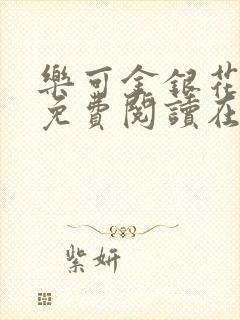 樂可金銀花
免費閱讀在
紫妍